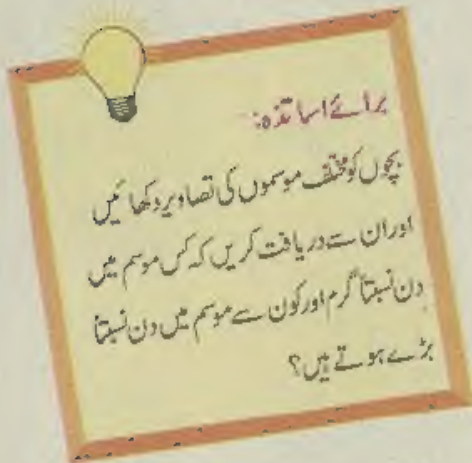 برائے اساتذہ:
بچوں کو مختلف موسموں کی تصاویر دکھائیں
اور ان سے دریافت کریں کہ کس موسم میں
دن نسبتاً گرم اور کون سے موسم میں دن نسبتاً
بڑے ہوتے ہیں؟